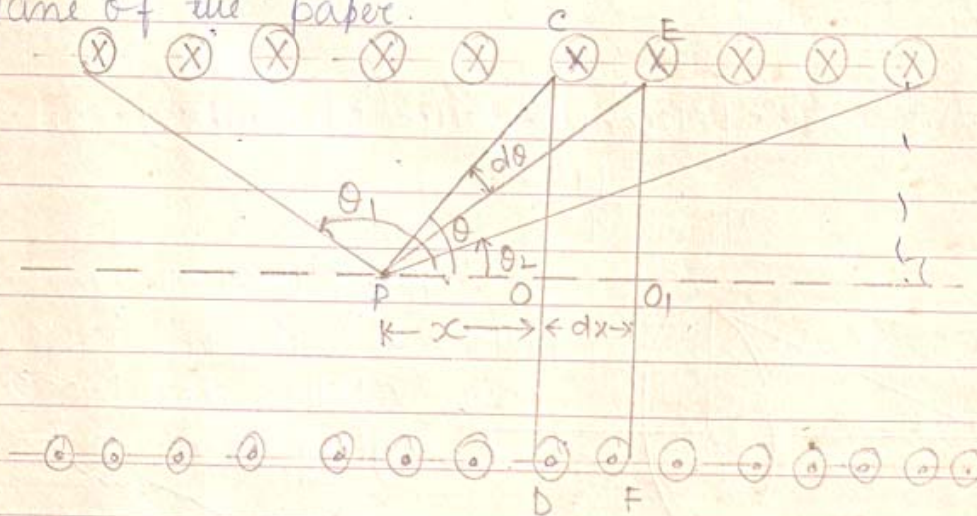 plane of the paper.
C
E
dθ
θ1
θ
θ2
P
O
O1
x
dx
D
F